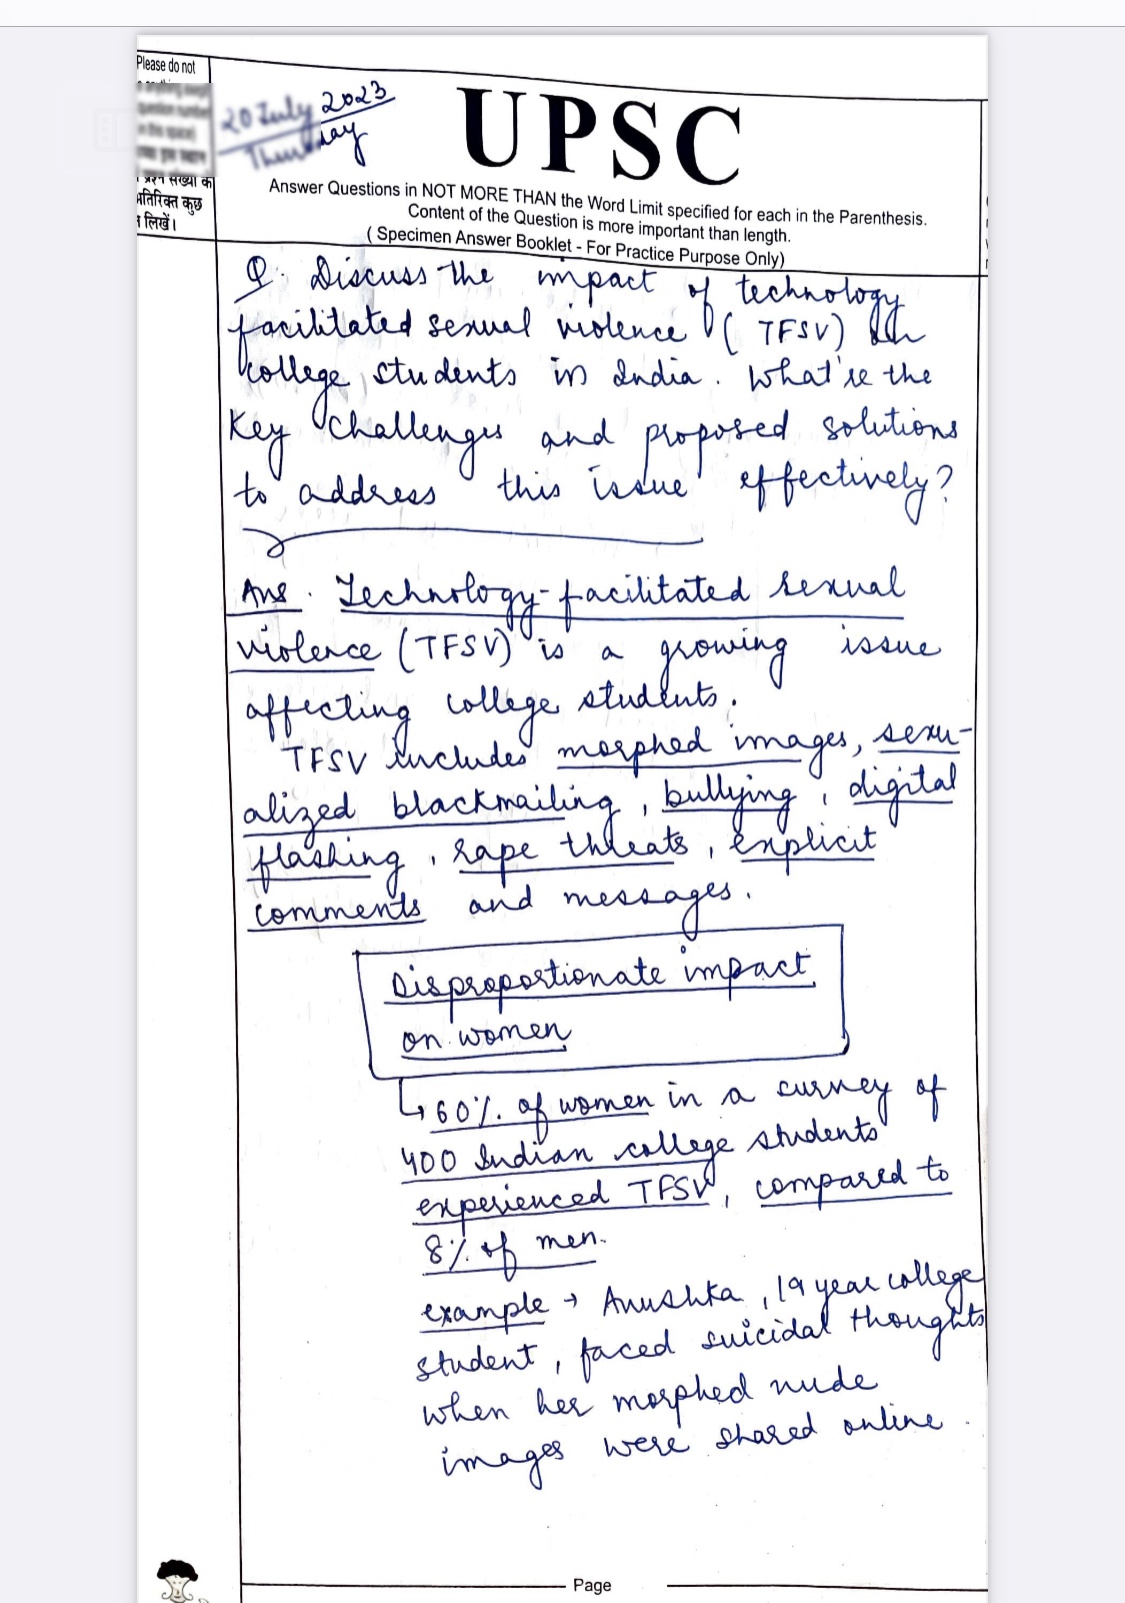 Please do not
20 July 2023
Thursday
प्रश्न संख्या के
अतिरिक्त कुछ
न लिखें।
UPSC
Answer Questions in NOT MORE THAN the Word Limit specified for each in the Parenthesis.
Content of the Question is more important than length.
( Specimen Answer Booklet - For Practice Purpose Only)
Q. Discuss the impact of technology
facilitated sexual violence (TFSV) on
college students in India. What're the
key challenges and proposed solutions
to address this issue effectively?
Ans. Technology-facilitated sexual
violence (TFSV) is a growing issue
affecting college students.
TFSV includes morphed images, sexu-
alized blackmailing, bullying, digital
flashing, rape threats, explicit
comments and messages.
Disproportionate impact
on women
↳ 60% of women in a survey of
400 Indian college students
experienced TFSV, compared to
8% of men.
example → Anushka, 19 year college
student, faced suicidal thoughts
when her morphed nude
images were shared online.
Page